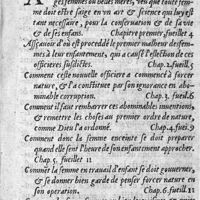 ges femmes ou belles meres, veu que toute fem-
me doit estre sage en un art & science qui luy est
tant necessaire, pour la conseruation & de sa vie
& de ses enfans. Chapitre premier, fueillet 4
Assçauoir d'où est procedé le premier malheur des fem-
mes à leur enfantement, qui a causé l'election de ces
officieres susdistes. Chap. 2. fueil. 5
Comment ceste nouuelle officiere a commencé à forcer
nature, & l'a contrainte en son operation.
Chap. 3. fueil. 5
Comment il faut rembarrer ces abominables inuentions,
& remettre les choses au premier ordre de nature,
comme Dieu l'a ordonné. Chap. 4. fuei. 9
Comment doit la femme enceinte se doit preparer
quand elle sent l'heure de son enfantement approcher.
Chap. 5. fueillet 11
Commēt la femme en trauail d'enfant se doit gouuerner,
& se donner bien garde de penser forcer nature en
son operation. Chap. 6. fueil. 11